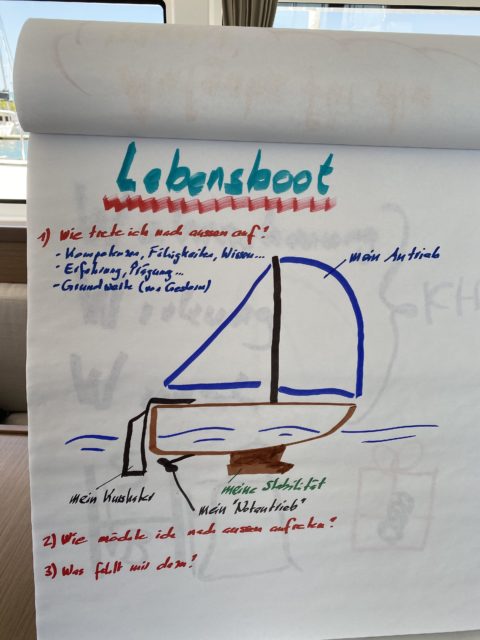 Lebensboot
1) Wie trete ich nach aussen auf?
- Kompetenzen, Fähigkeiten, Wissen...
- Erfahrung, Prägung...
- Grundwerte (von Gestern)
mein Antrieb
meine Stabilität
mein Kurshalter
mein "Notantrieb"
2) Wie möchte ich nach aussen auftreten?
3) Was fehlt mir dazu?